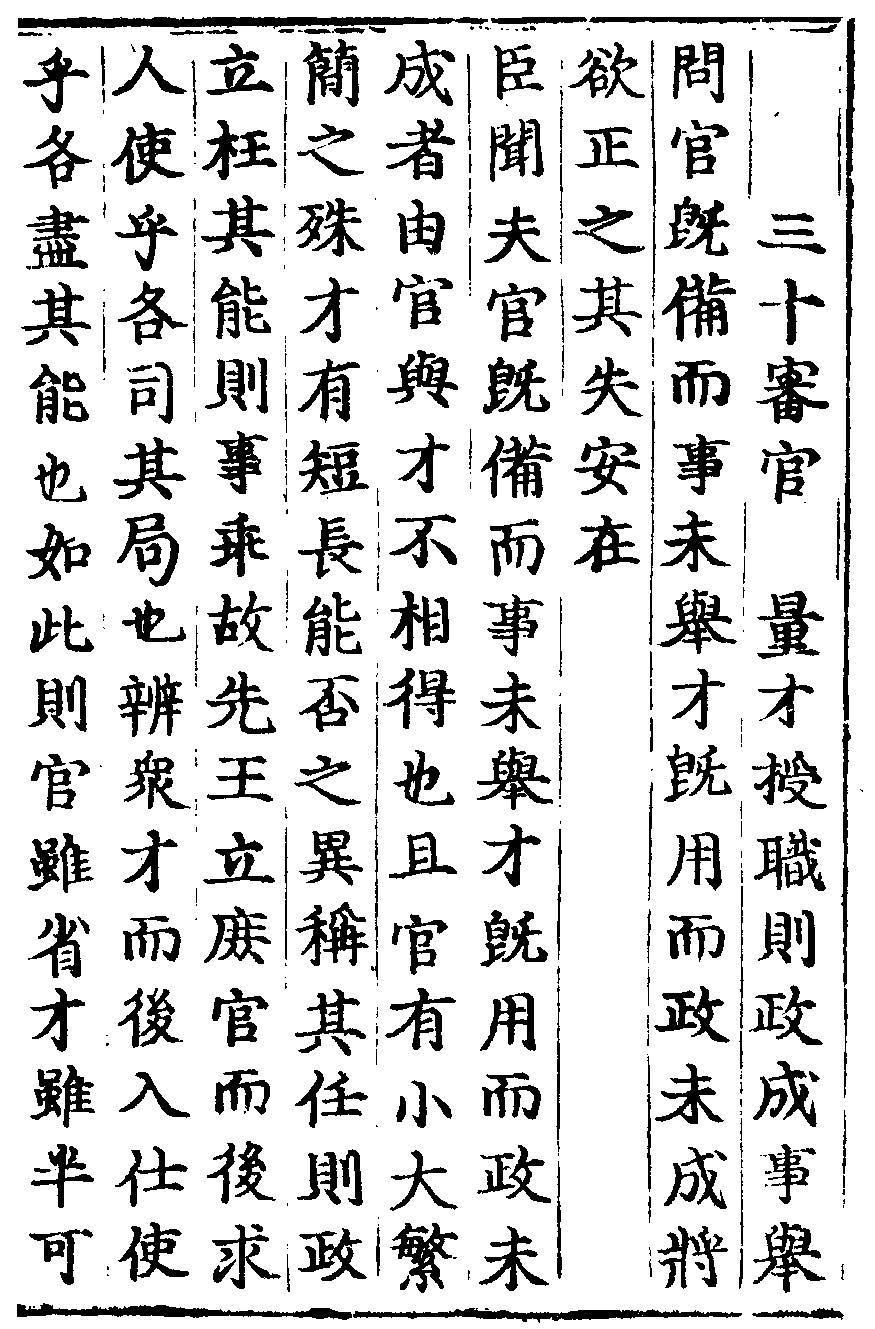 三十審官　量才授職則政成事舉
問官旣備而事未舉才旣用而政未成將
欲正之其失安在
臣聞夫官旣備而事未舉才旣用而政未
成者由官與才不相得也且官有小大繁
簡之殊才有短長能否之異稱其任則政
立枉其能則事乖故先王立庶官而後求
人使乎各司其局也辨衆才而後入仕使
乎各盡其能也如此則官雖省才雖半可